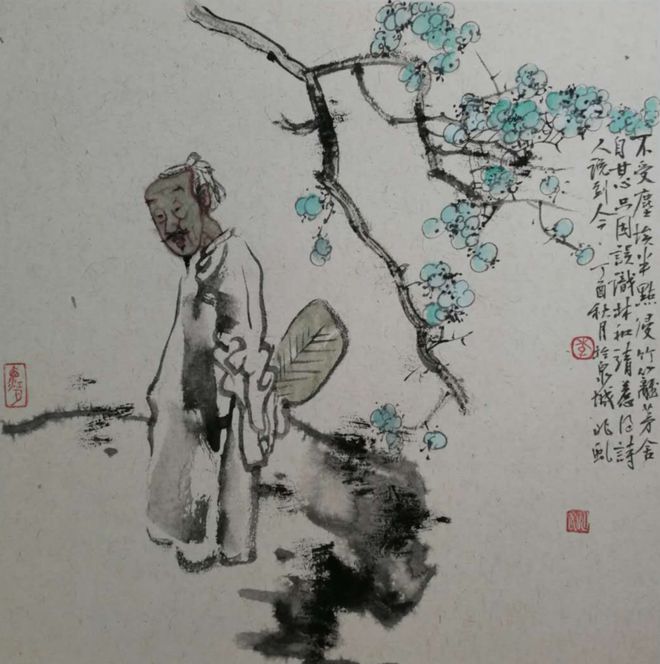 不受塵埃半點浸竹籬茅舍
自甘心只因誤識林和靖惹得詩
人說到今丁酉秋月於泉城兆虬